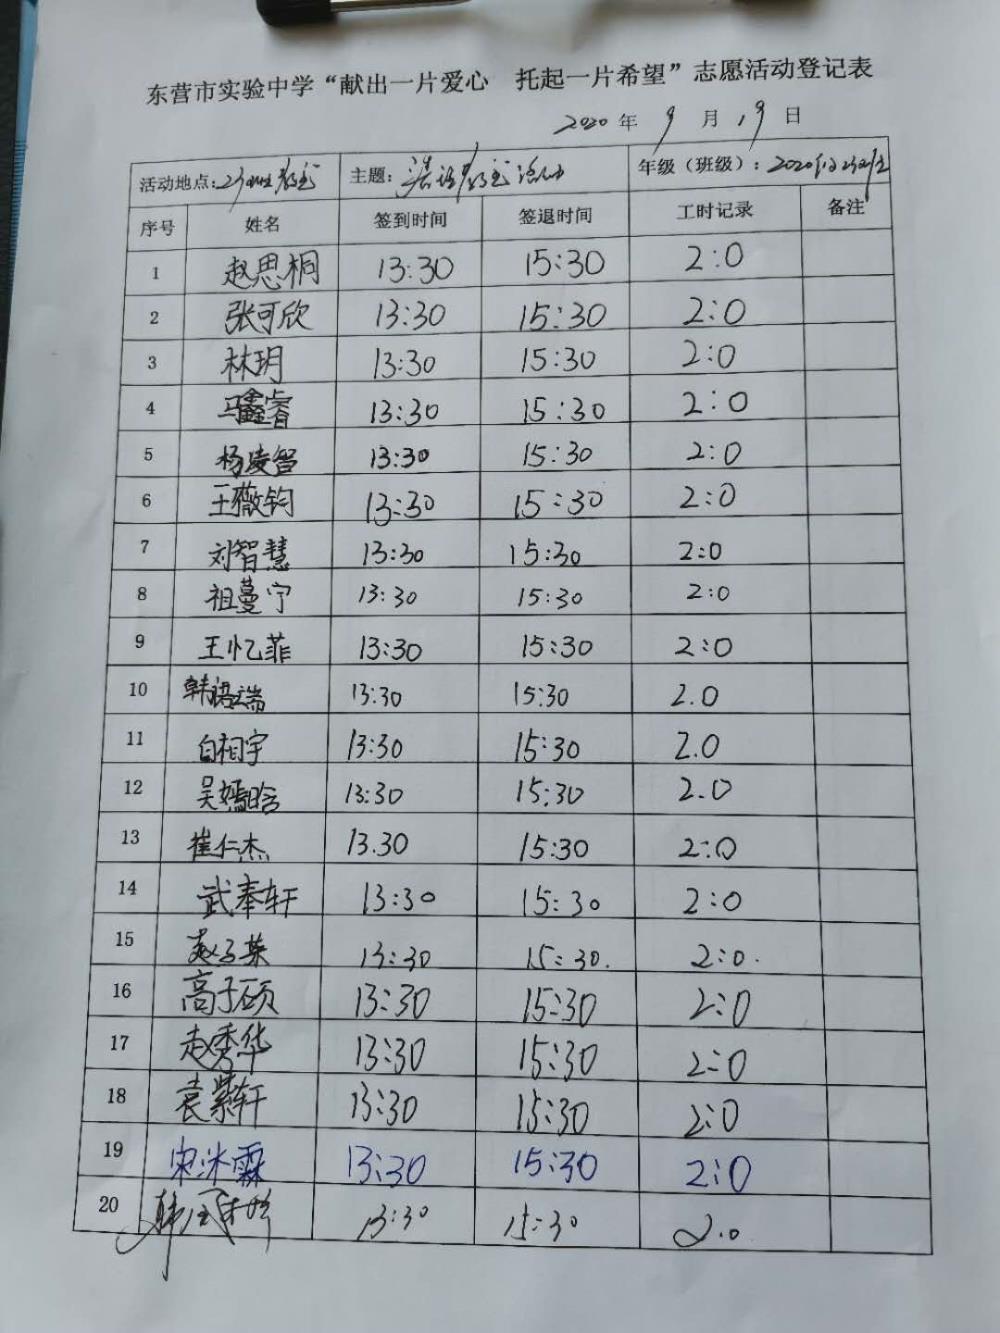 东营市实验中学“献出一片爱心 托起一片希望”志愿活动登记表
2020 年 9 月 19 日
活动地点: 教室 主题: 清洁教室活动 年级（班级）: 2020级
序号 姓名 签到时间 签退时间 工时记录 备注
1 赵思桐 13:30 15:30 2:0
2 张可欣 13:30 15:30 2:0
3 林玥 13:30 15:30 2:0
4 马鑫睿 13:30 15:30 2:0
5 杨凌智 13:30 15:30 2:0
6 王薇钧 13:30 15:30 2:0
7 刘智慧 13:30 15:30 2:0
8 祖蔓宁 13:30 15:30 2:0
9 王忆菲 13:30 15:30 2:0
10 韩语端 13:30 15:30 2.0
11 白相宇 13:30 15:30 2.0
12 吴嫣晗 13:30 15:30 2.0
13 崔仁杰 13.30 15:30 2:0
14 武奉轩 13:30 15:30 2:0
15 赵子荣 13:30 15:30. 2:0.
16 高子硕 13:30 15:30 2:0
17 赵秀华 13:30 15:30 2:0
18 袁紫轩 13:30 15:30 2:0
19 宋沐霖 13:30 15:30 2:0
20 13:30 15:30 2.0